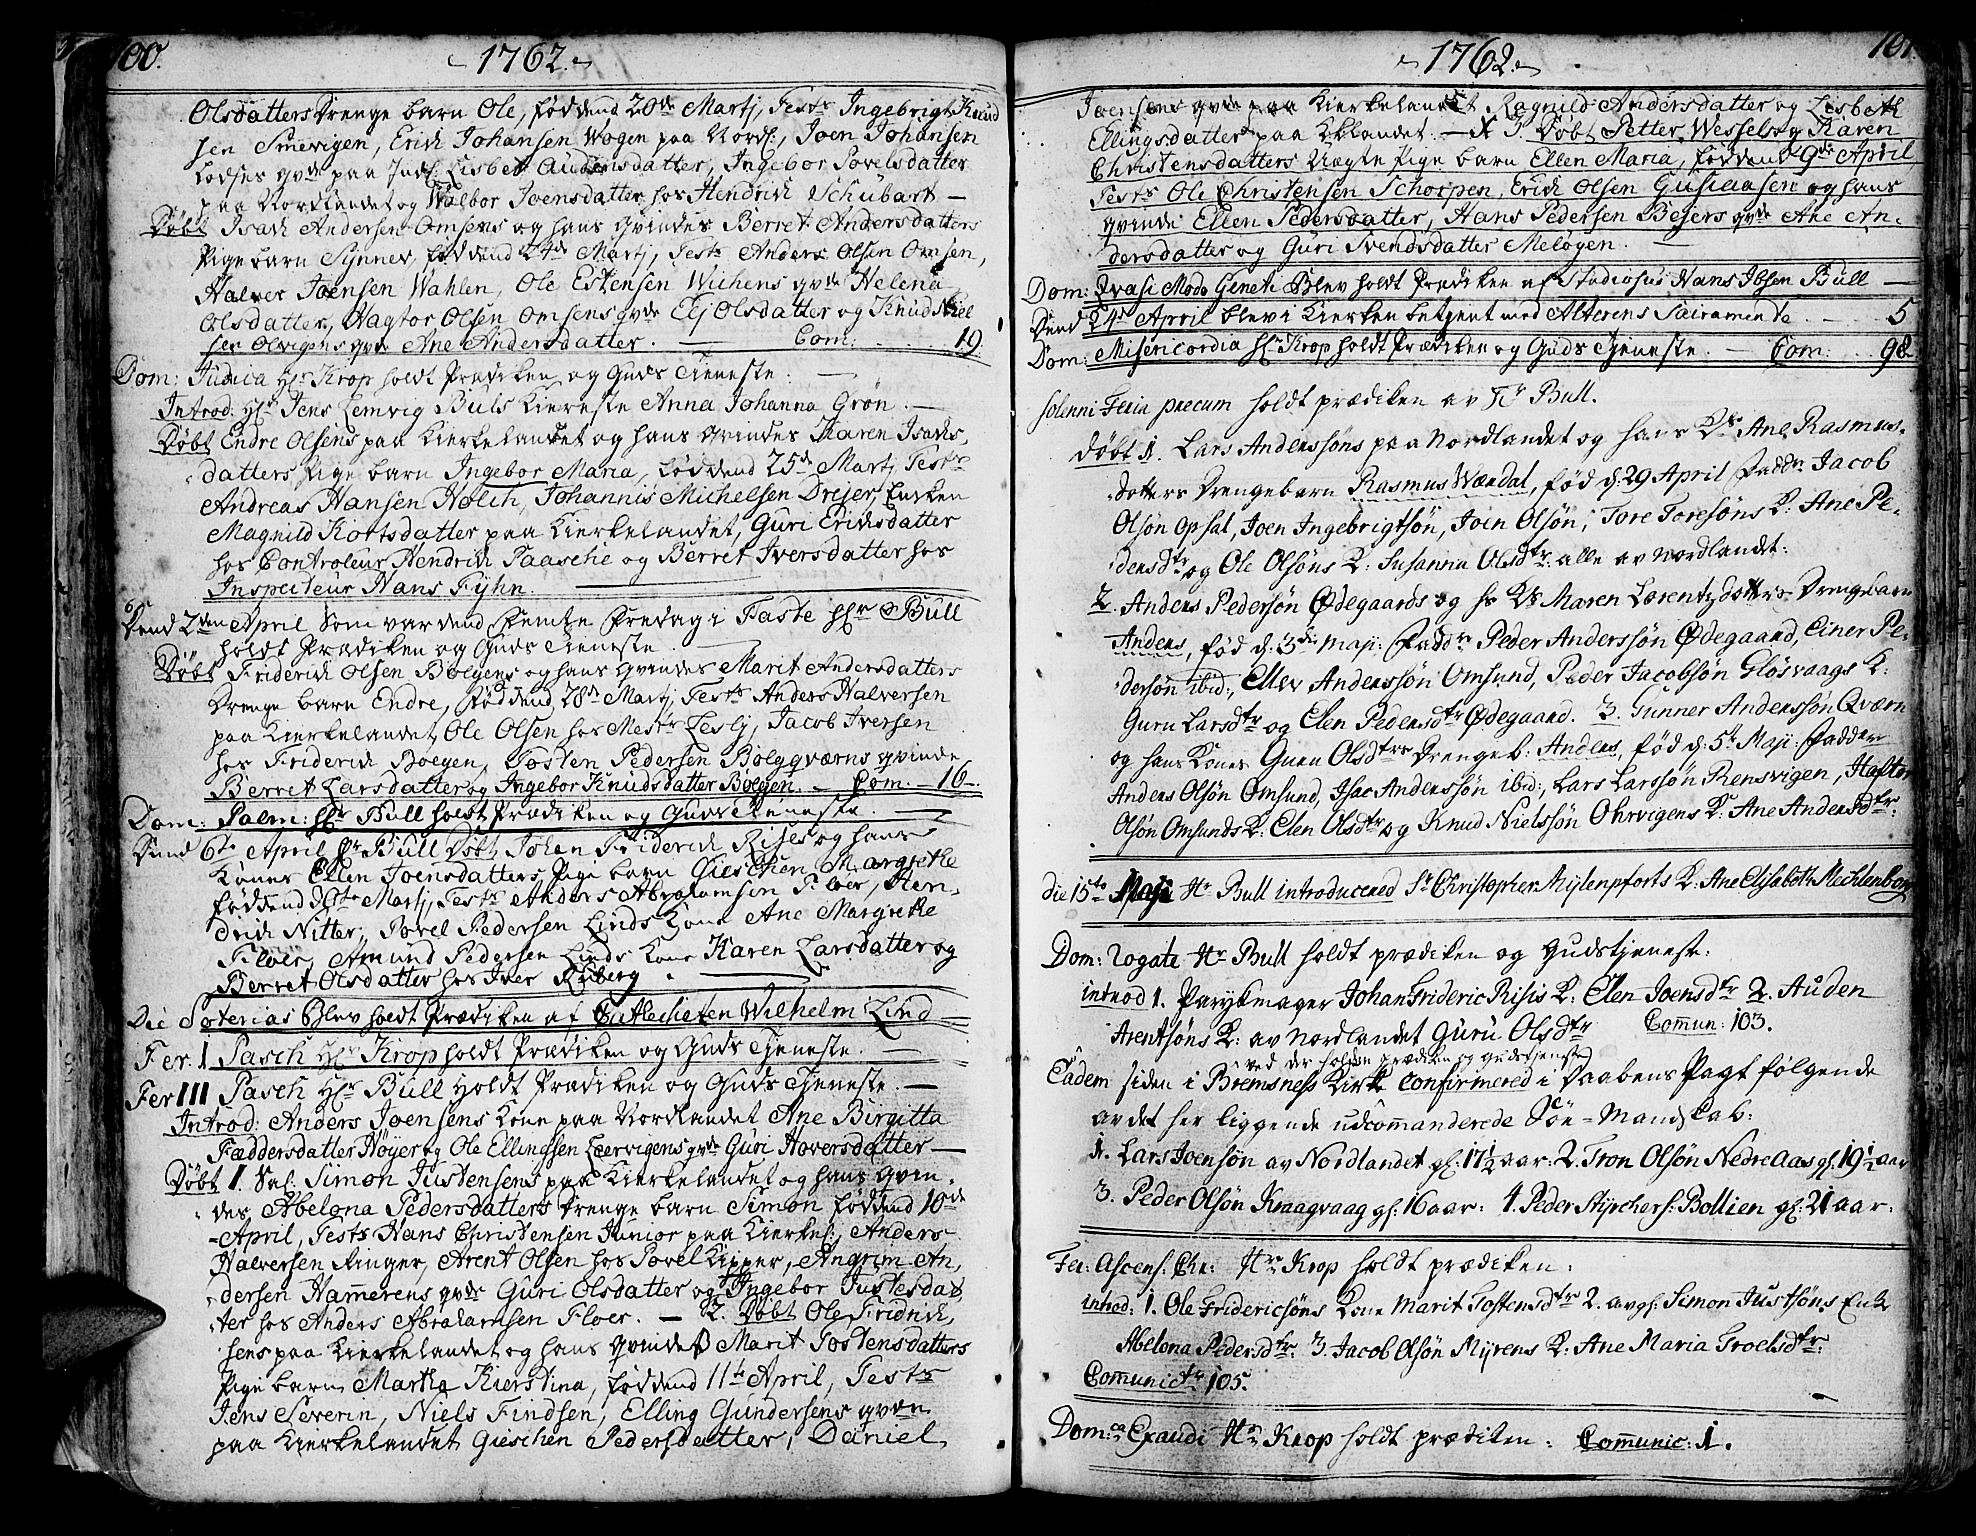 100.
-1762.-
Olsdatters Drenge barn Ole, føddend 20de Martj, Testr Ingebrigt Knud
sen Smevigen, Erich Johansen Wogen paa Nordl:, Joen Johansen
Lodses qvde paa Indl: Lisbet Audensdatter, Ingebor Povelsdatter
paa Nordlandet og Walbor Joensdatter hos Hendrich Schubart —
Døbt Isach Andersen Omsens og hans qvindes Berret Andersdatters
Pige barn Synnev, føddend 24de Martj, Testr Anders Olsen Omsen,
Halver Joensen Wahlen, Ole Estensen Wichens qvde Helena
Olsdatter, Hagtor Olsen Omsens qvde Elj Olsdatter og Knud Niel
sen Olvigens qvde Ane Andersdatter. — Com: 19
Dom: Judica Hr Krop holdt Prædiken og Guds Tieneste. —
Introd: Hr Jens Lemvig Buls Kiereste Anna Johanna Grøn. —
Døbt Endre Olsens paa Kierkelandet og hans qvindes Karen Isachs,
datters Pige barn Ingebor Maria, føddend 25de Martj Testr
Andreas Hansen Holch, Johannis Michelsen Drejer, Enken
Magnild Kortsdatter paa Kierkelandet, Guri Erichsdatter
hos Controleur Hendrich Paasche og Berret Iversdatter hos
Inspecteur Hans Fyhn. —
Dend 2den April som var dend Femte Fredag i Faste Hr Bull
holdt Prædiken og Guds Tieneste. —
Døbt Friderich Olsen Bolgens og hans qvindes Marit Andersdatters
Drenge barn Endre, føddend 28de Martj, Testr Anders Halversen
paa Kierkelandet, Ole Olsen hos Mestr Leslj, Jacob Iversen
hos Friderich Boegen, Tosten Pedersen Bolgqværns qvinde
Berret Larsdatter og Ingebor Knudsdatter Bolgen. — Com. 16 —
Dom: Palm: Hr Bull holdt Prædiken og Guds Tieneste.
Dend 6te April Hr Bull Døbt Johan Friderich Rises og hans
Kones Ellen Joensdatters Pige barn Gieschen Margrethe
føddend Martj, Testr Anders Abrahamsen Floer, Hen,
drich Nitter, Povel Pedersen Linds Kone Ane Margrethe
Floer, Amund Pedersen Linds Kone Karen Larsdatter og
Berret Olsdatter hos Iver Riberg. —
Die Soterias Blev holdt Prædiken af Cathecheten Wilhelm Lind —
Fer. I Pasch Hr Krop holdt Prædiken og Guds Tjeneste. —
Fer III Pasch Hr Bull Holdt Prædiken og Guds Tjeneste. —
Introd: Anders Joensens Kone paa Nordlandet Ane Birgitta
Fæddersdatter Høyer og Ole Ellingsen Leervigens qvde Guri Hoversdatter —
Døbt 1. Sal. Simon Justensens paa Kierkelandet og hans qvin,
des Abelona Pedersdatters Drenge barn Simon føddend 10de
April, Testr Hans Christensen Junior paa Kierkel:, Anders
Halversen Ringer, Arent Olsen hos Povel Kipper, Angrim An,
dersen Hamerens qvde Guri Olsdatter og Ingebor Justesdat,
ter hos Anders Abrahamsen Floer. — 2. Døbt Ole Fridrich,
sens paa Kierkelandet og hans qvindes Marit Tostensdatters
Pige barn Martha Kierstina, føddend 11te April, Testr
Jens Severin, Niels Findsen, Elling Gundersens qvde
paa Kierkelandet Gieschen Pedersdatter, Daniel
101.
-1762.-
Joensens qvde paa Kierkelandet Ragnild Andersdatter og Lisbeth
Ellingsdatter paa Kklandet. — 3. Døbt Petter Wessel og Karen
Christensdatters Uægte Pige barn Ellen Maria, føddend 9de April,
Testr Ole Christensen Schorpen, Erich Olsen Gusiaasen og hans
qvinde Ellen Pedersdatter, Hans Pedersen Bejers qvde Ane An-
dersdatter og Guri Svendsdatter Meløgen. —
Dom: Qvasi Modo Geneti Blev holdt Prædiken af Studiosus Hans Ibsen Bull —
Dend 24de April blev i Kierken betjent med Alterens Sacramente — 5
Dom: Misericordia Hr Krop holdt Prædiken og Guds Tjeneste. — Com: 98
Solenni Feria precum holdt prædiken av Hr Bull.
døbt 1. Lars Anderssøns paa Nordlandet og hans Ks Ane Rasmus-
dotters Drengebarn Rasmus Wændal, fød d: 29 April, Faddr Jacob
Olsøn Opsal, Joen Ingebrigtsøn, Join Olsøn, Tore Toresøns K: Ane Pe-
densdtr og Ole Olsøns K: Susanna Olsdtr: alle av Nordlandet:
2. Anders Pedersøn Ødegaards og hs Ks Maren Lorentzdotters Drengebarn
Anders, fød d: 3de Maji: Faddr Peder Anderssøn Ødegaard, Einer Pe-
dersøn ibid:, Ellev Anderssøn Omsund, Peder Jacobsøn Gløsvaags K:
Guru Larsdtr og Elen Pedersdtr Ødegaard. 3. Gunner Anderssøn Qværn
og hans Kones Guru Olsdtrs Drengeb: Anders, fød d: 5te Maji: Fadder
Anders Olsøn Omsund, Isac Anderssøn ibid:, Lars Larssøn Rensvigen, Haftor
Olsøn Omsunds K: Elen Olsdtr og Knud Nielssøn Ohrvigens K: Ane Andersdtr:
Die 15to Maji Hr Bull introducered Sr Christopher Mylenpforts K: Ane Elisabeth Mechlenborg
Dom: Rogate Hr Bull holdt prædiken og gudstjeneste:
introd 1. Parykmager Johan Frideric Risis K: Elen Joensdtr 2. Auden
Arentsøns K: av Nordlandet Guru Olsdtr Comun: 103.
ved der holden prædiken og gudstjeneste
Eadem siden i Bremsness Kirk confirmered i Daabens Pagt følgende
av det her liggende udcomanderede Søe-Mandskab:
1. Lars Joensøn av Nordlandet gl: 17½ aar: 2. Tron Olsøn Nedre Aas gl: 19½ aar
3. Peder Olsøn Kraagvaag gl: 16 aar: 4. Peder Styrchers: Bollien gl: 21 aar:
Fer: Ascens: Chr: Hr Krop holdt prædiken:
introd: 1. Ole Fridericsøns Kone Marit Tostensdtr 2. avgl: Simon Justsøns Enk
Abelona Pedersdtr: 3. Jacob Olsøn Myrens K: Ane Maria Troelsdtr:
Comunictr 105.
Domca Exaudi Hr Krop holdt prædiken: Comunic: 1.